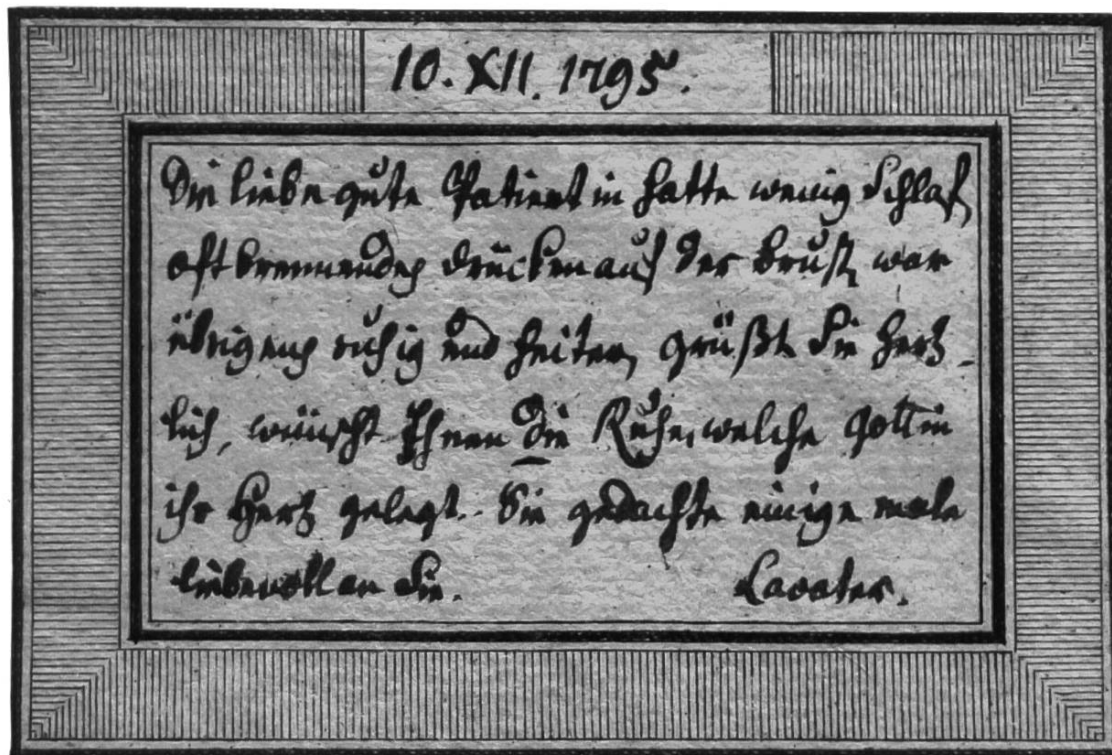 10. XII. 1795.
Die liebe gute Patientin hatte wenig Schlaf,
oft brennendes drücken auf der Brust, war
übrigens ruhig und heiter, grüßt Sie herz-
lich, wünscht Ihnen die Ruhe, welche Gott in
ihr Herz gelegt. Sie gedachte einige male
liebevoll an Sie.
Lavater.